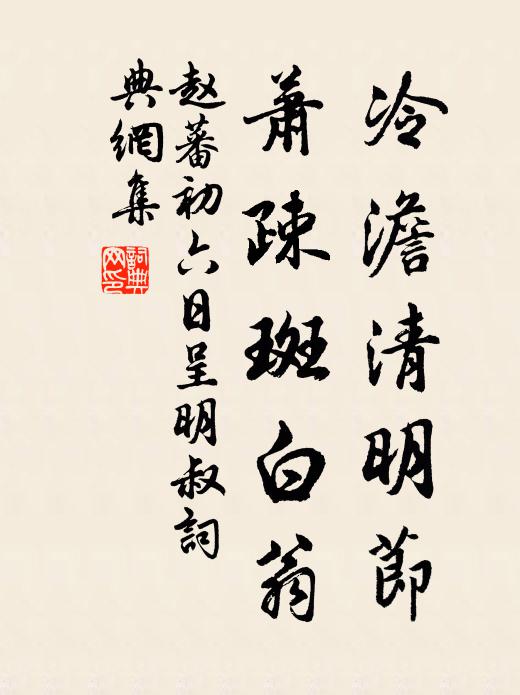 冷澹清明節
蕭疎斑白翁
赵蕃初六日呈明叔詞
典網集
詞典
网印